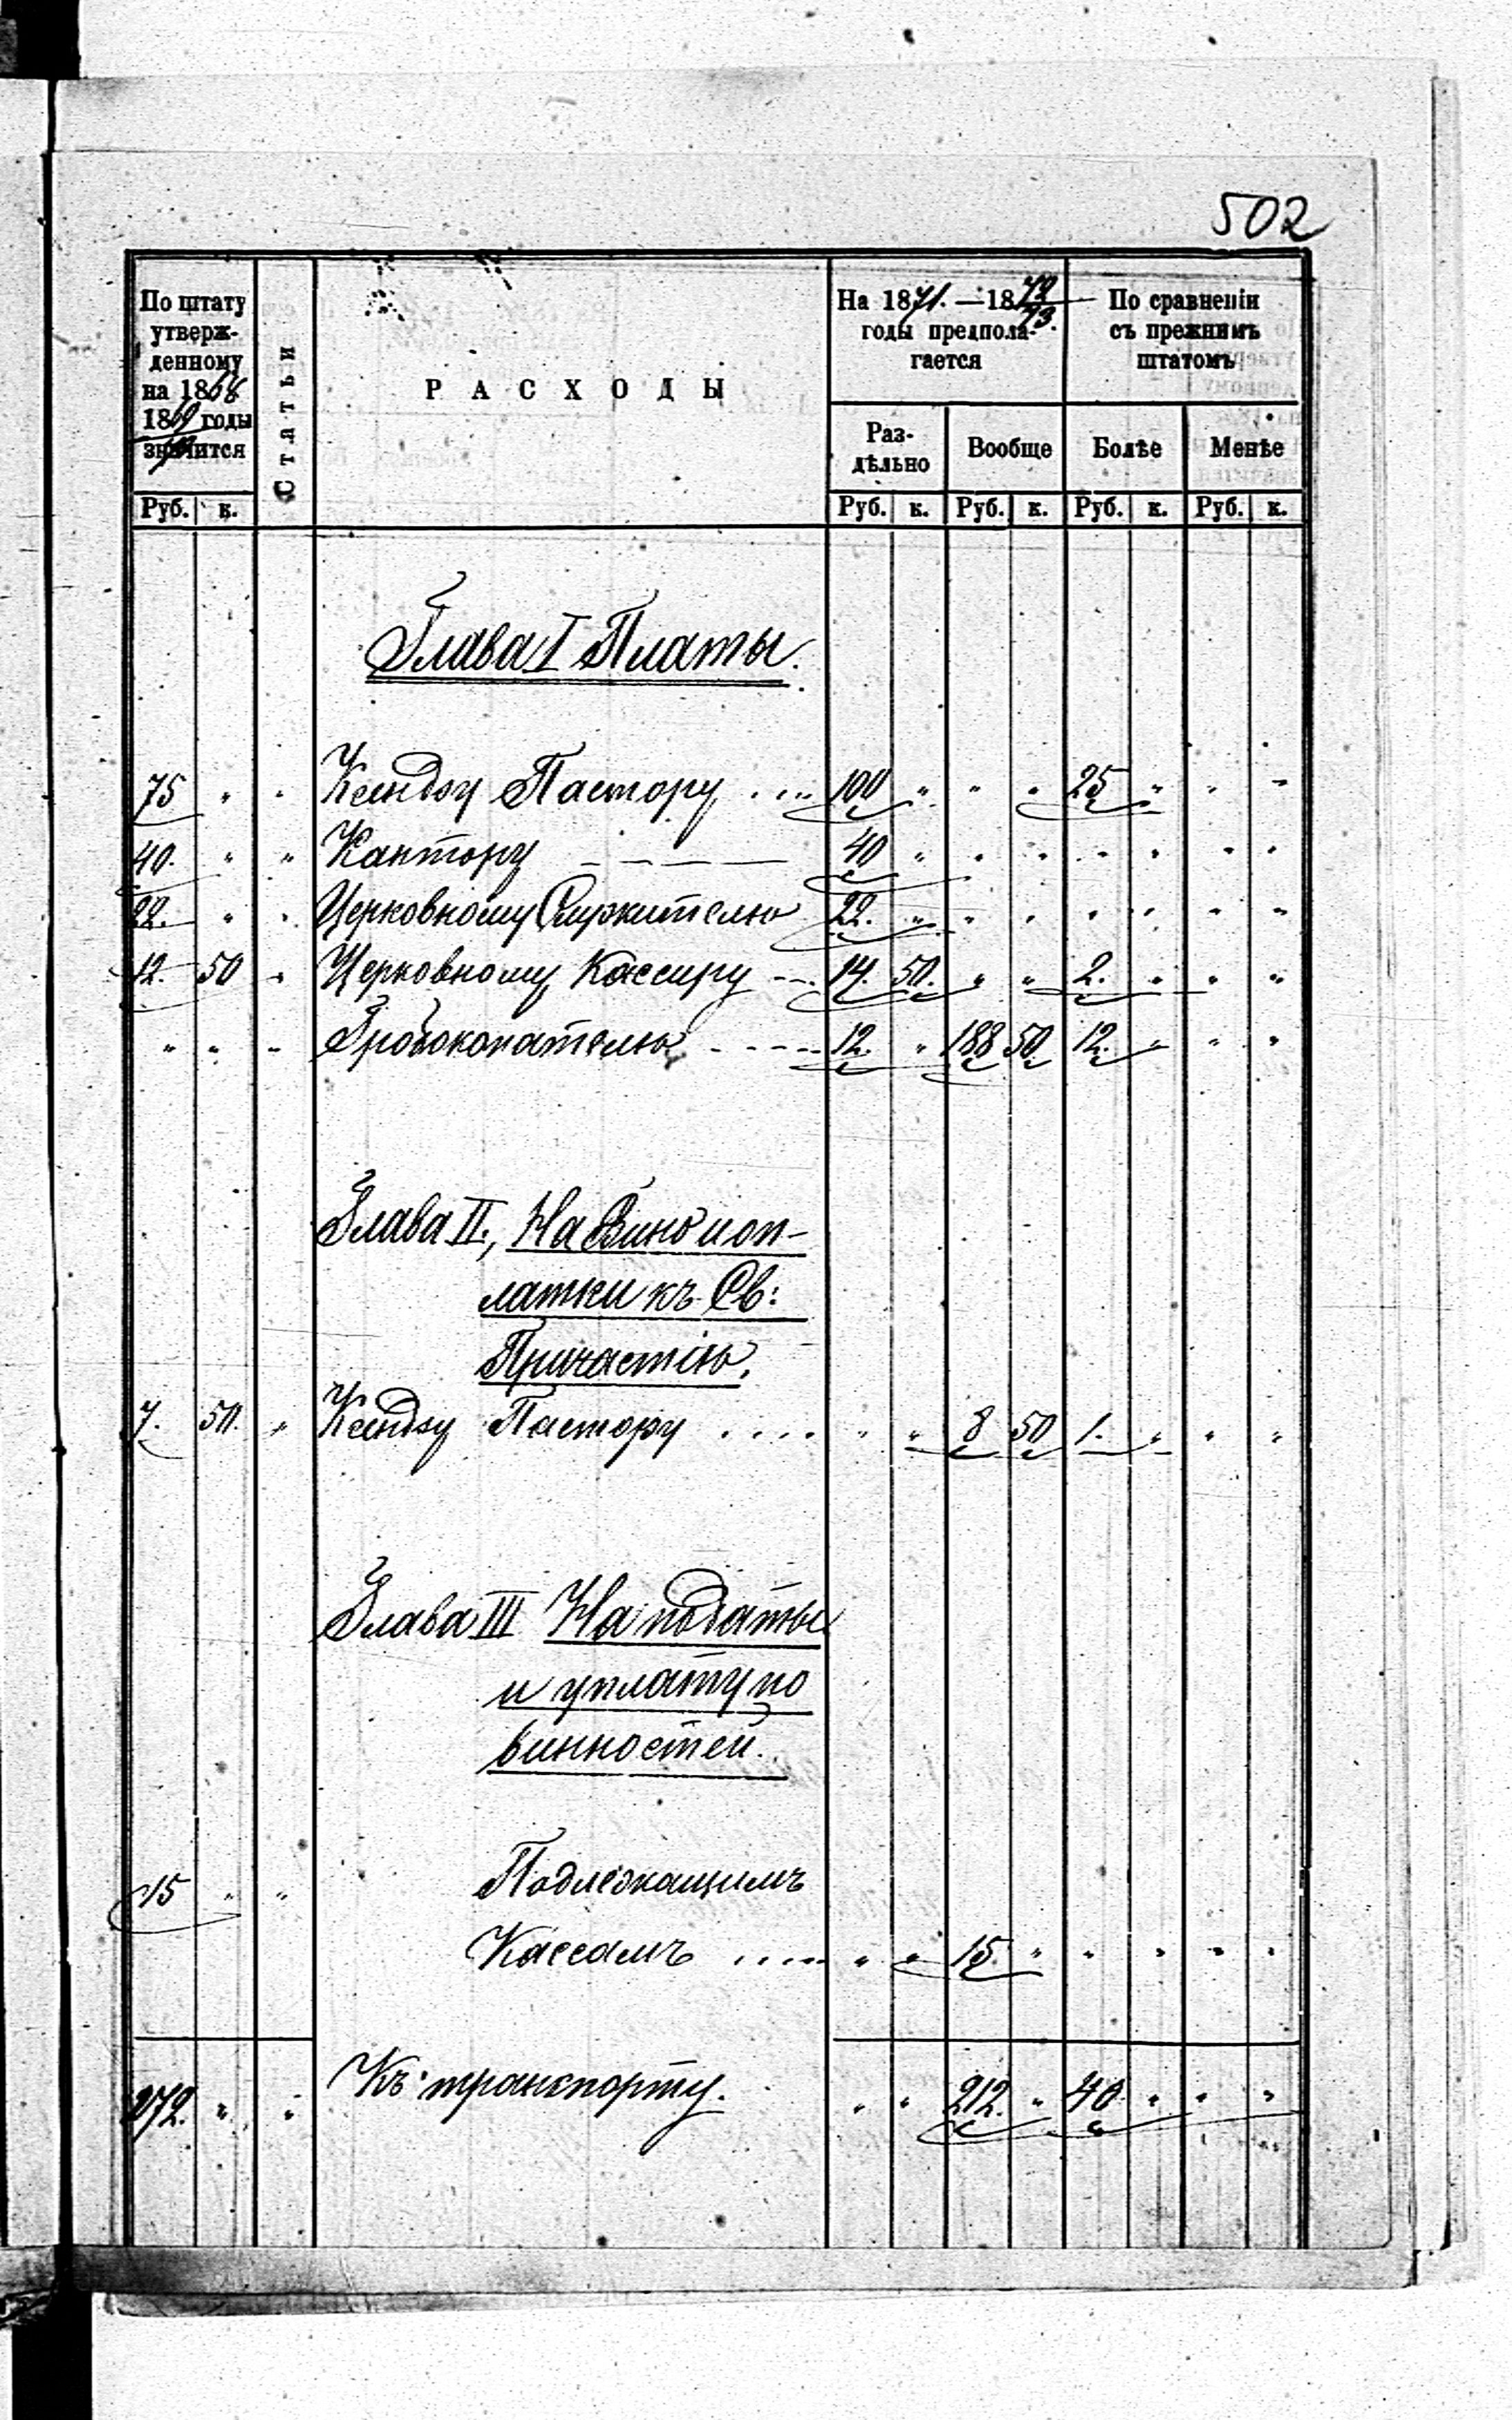 502
По штату
утверж-
денному
на 1868
1869 годы
значится
Статьи
РАСХОДЫ
На 1871.—1872/73.
годы предпола-
гается
По сравненіи
съ прежнимъ
штатомъ
Раз-
дѣльно
Вообще
Болѣе
Менѣе
Руб. к. Руб. к. Руб. к. Руб. к. Руб. к.
Глава I Платы.
75 " " Ксендзу Пастору .... 100 " " " 25 " " "
40. " " Кантору — — — — 40 " " " " " " "
22. " " Церковному Служителю 22. " " " " " " "
12. 50 " Церковному Кассиру --. 14. 50. " " 2. " " "
" " " Гробокопателю ----- 12. " 188 50 12. " " "
Глава II., На Вино и оп-
латки къ Св:
Причастію.
7. 50. " Ксендзу Пастору .... " " 8 50 1. " " "
Глава III На податы
и уплату по
винностей.
15 " " Подлежащимъ
Кассамъ ..... " " 15. " " " " "
172. " " Къ транспорту. " " 212. " 40 " " "